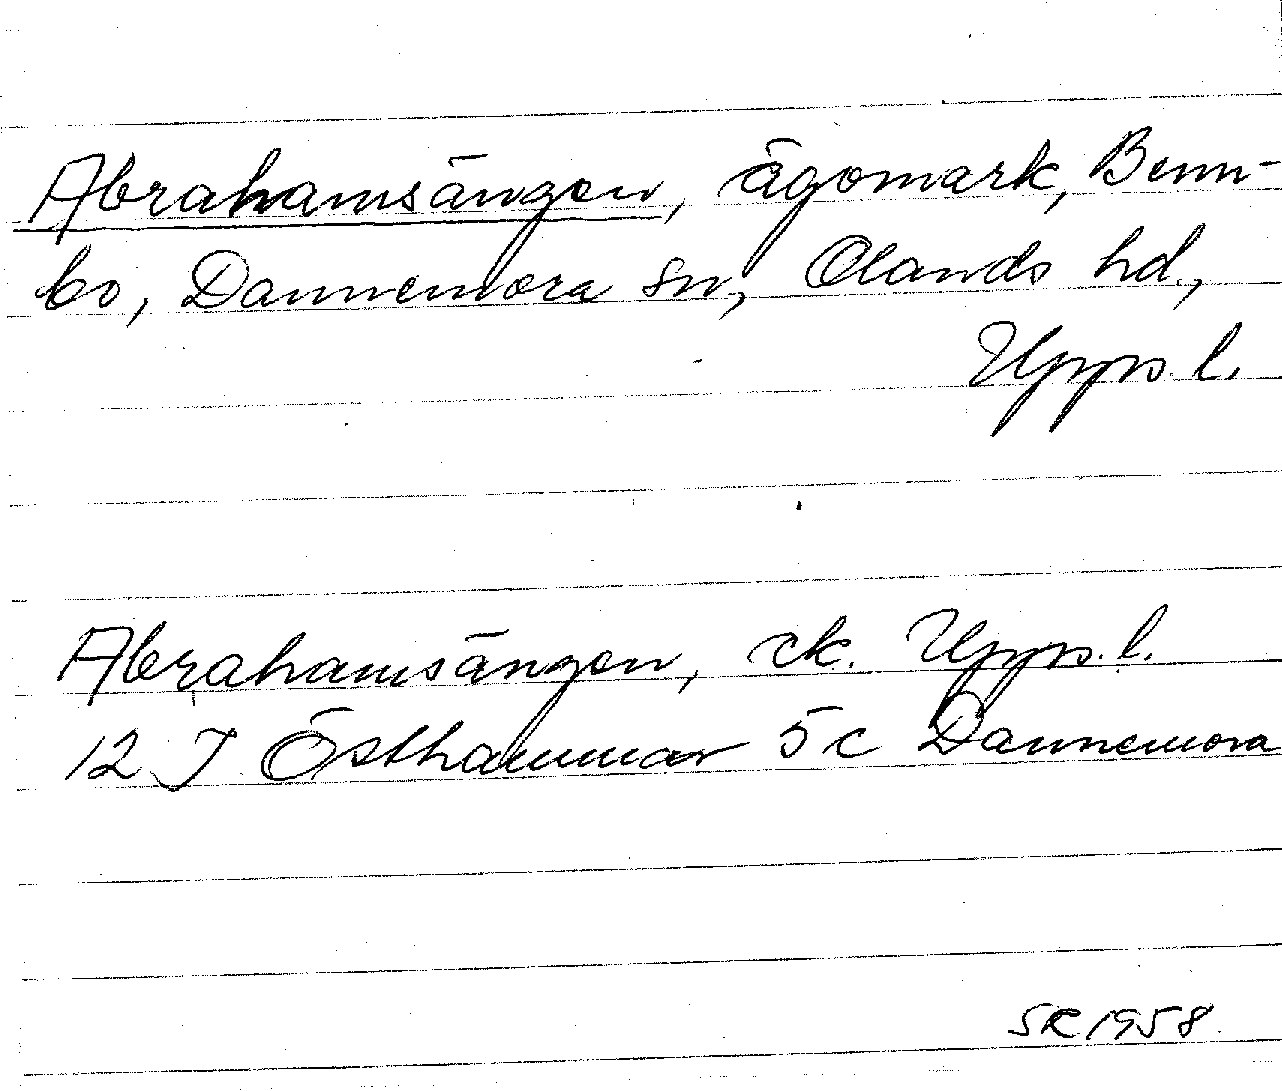 Abrahamsängen, ägomark, Benn-
bo, Dannemora sn, Olands hd,
Upps. l.
Abrahamsängen, ek. Upps. l.
12 I Östhammar 5c Dannemora
SR 1958